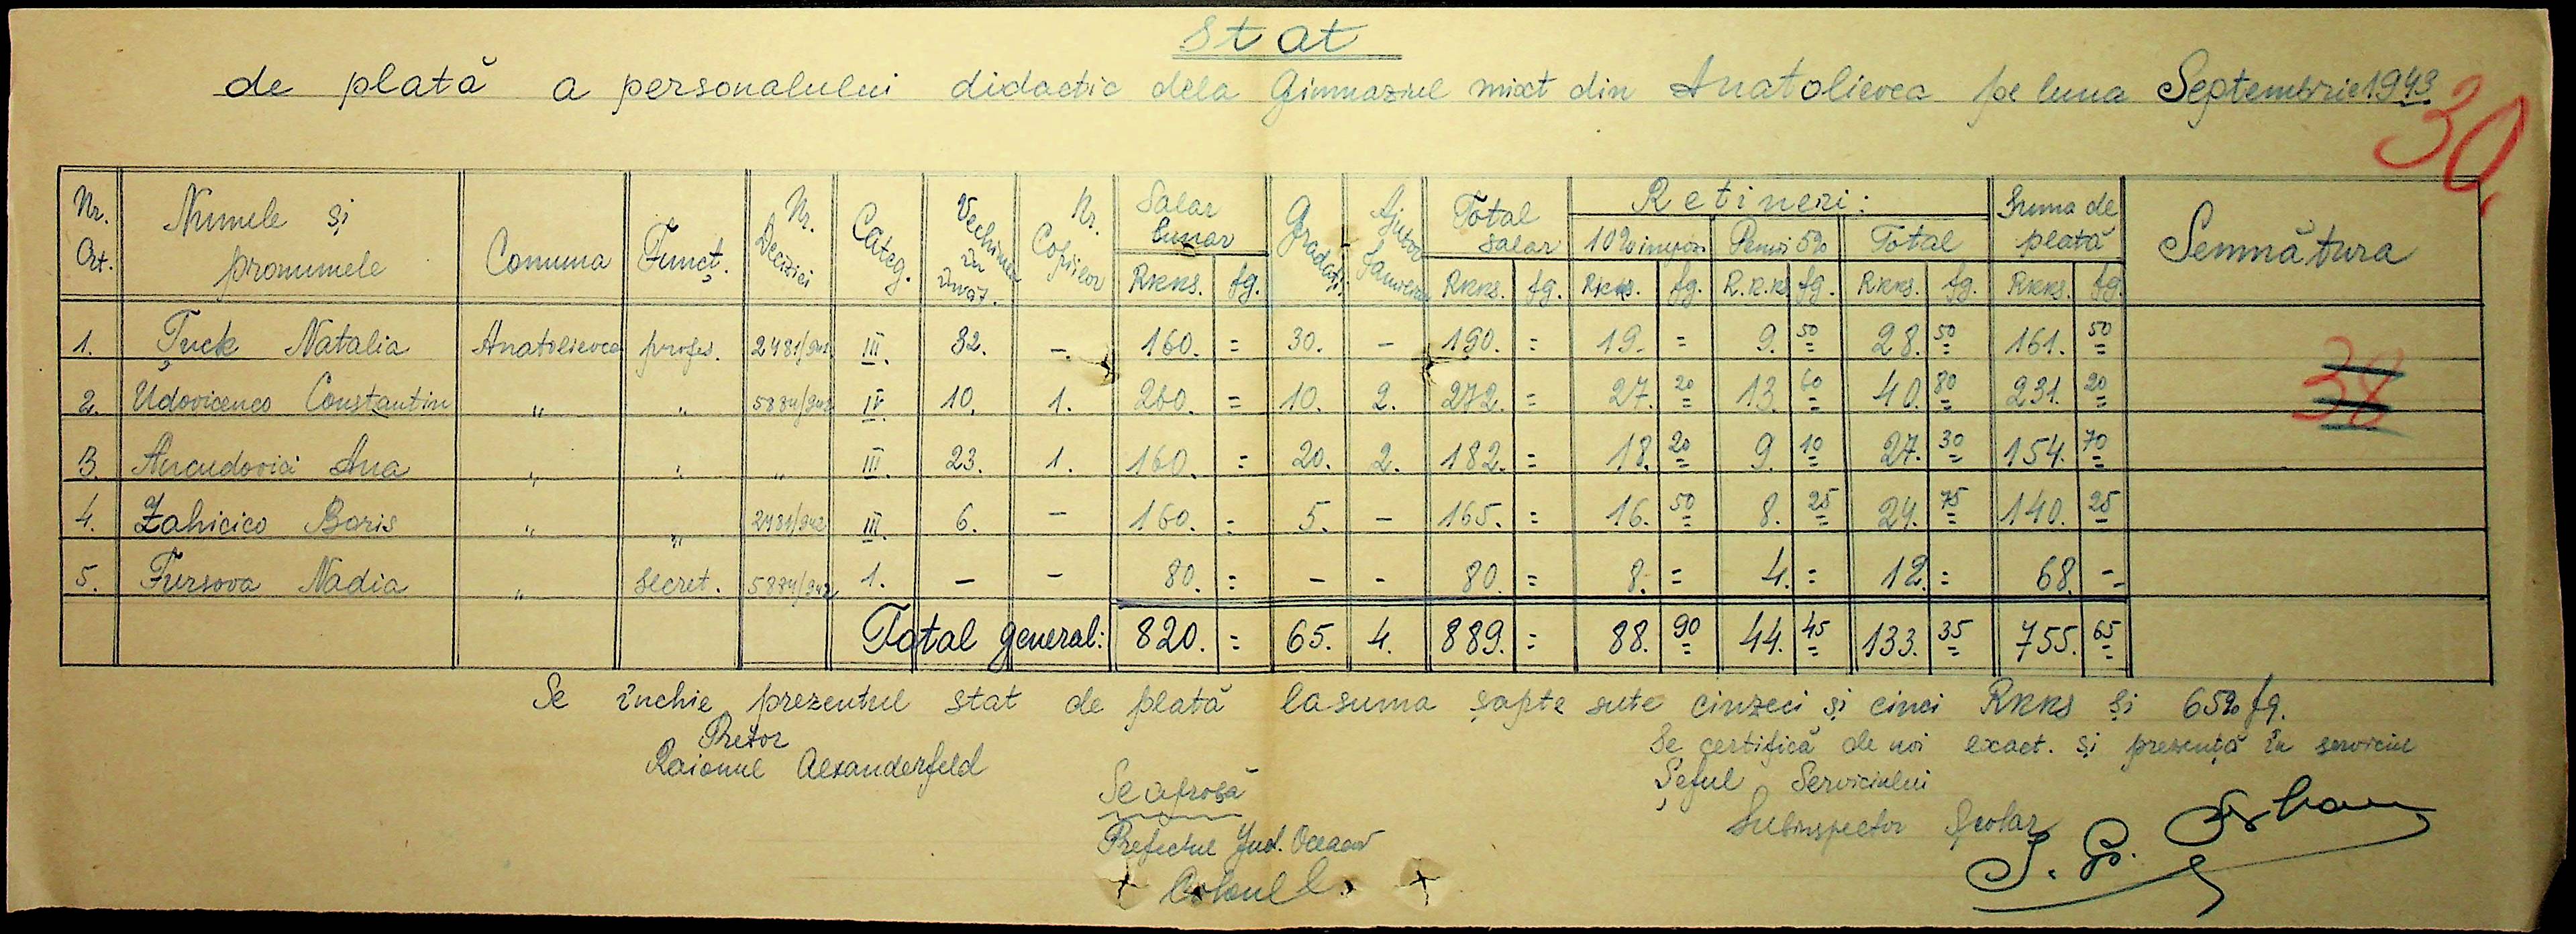 Stat
de plată a personalului didactic dela Gimnaziul mixt din Anatolievca pe luna Septembrie 1943
30.
Nr. Crt. Numele și pronumele Comuna Funcț. Nr. Deciziei Categ. Vechimea în învăț. Nr. Copiilor Salar lunar Gradați. Ajutor familiar Total salar Rețineri: Suma de plată Semnătura
10% impoz. Pensi 5% Total
Rkks. fg. Rkks. fg. Rkks. fg. R.k.ks fg. Rkks. fg. Rkks. fg.
1. Țuck Natalia Anatolievca profes. 2481/942 III. 32. - 160. = 30. - 190. = 19. = 9. 50 28. 50 161. 50
2. Udovicenco Constantin " " 5884/942 IV. 10. 1. 260. = 10. 2. 272. = 27. 20 13. 60 40. 80 231. 20
38
3. Ancudovici Ana " " " III. 23. 1. 160. = 20. 2. 182. = 18. 20 9. 10 27. 30 154. 70
4. Zahicico Boris " " 2481/942 III. 6. - 160. = 5. - 165. = 16. 50 8. 25 24. 75 140. 25
5. Fursova Nadia " secret. 5884/942 1. - - 80. = - - 80. = 8. = 4. = 12. = 68. -
Total general: 820. = 65. 4. 889. = 88. 90 44. 45 133. 35 755. 65
Se închie prezentul stat de plată la suma șapte sute cinzeci și cinci Rkks și 65% fg.
Pretor
Raionul Alexanderfeld
Se certifică de noi exact. și prezență în serviciu
Șeful Serviciului
Subinspector Școlar
Se aprobă
Prefectul Jud. Oceacov
Colonel